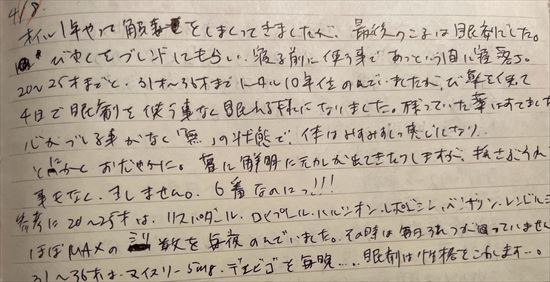 4/8.
オイル1年やって解毒をしまくってきましたが、最後のころは眠剤でした。
びゃくをブレンドしてもらい、寝る前に使う事であっという間に寝落ち。
20〜25才までと、31才〜36才までトータル10年位のんでいましたが、び薬を使って
4日で眠剤を使う事なく眠れる様になりました。残っていた薬はすてました
心がづれる事がなく「無」の状態で、体はみずみずしい感じになり、
とにかくおだやかに。昔に鮮明に元カレが出てきたりしますが、
事もなく、しません。6番なのにっ!!!
参考に20〜25才は、リスパダール、ロヒプノール、ハルシオン、レボトミン、
ほぼMAXの 数を毎夜のんでいました。その時は毎日 っていません
31〜36才は、マイスリー5mg、デエビゴを毎晩….. 眠剤は性格をこわします…。